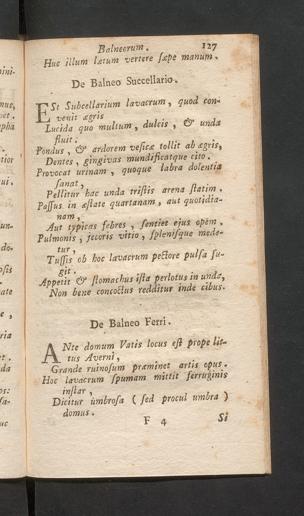 Balneorum. 127
Huc illum lætum vertere sæpe manum.
De Balneo Succellario.
ESt Subcellarium lavacrum, quod con-
venit ægris
Lucida quo multum, dulcis, & unda
fluit.
Pondus, & ardorem vesicæ tollit ab ægris,
Dentes, gingivas mundificatque cito.
Provocat urinam, quoque labra dolentia
sanat,
Pellitur hac unda tristis arena statim.
Passus in æstate quartanam, aut quotidia-
nam,
Aut typicas febres, sentiet ejus opem.
Pulmonis, jecoris vitio, splenisque mede-
tur,
Tussis ob hoc lavacrum pectore pulsa fu-
git.
Appetit & stomachus ista perlotus in unda,
Non bene concoctus redditur inde cibus.
De Balneo Ferri.
ANte domum Vatis locus est prope lit-
tus Averni,
Grande ruinosum præminet artis opus.
Hoc lavacrum spumam mittit ferruginis
instar,
Dicitur umbrosa ( sed procul umbra )
domus.
F 4 Si